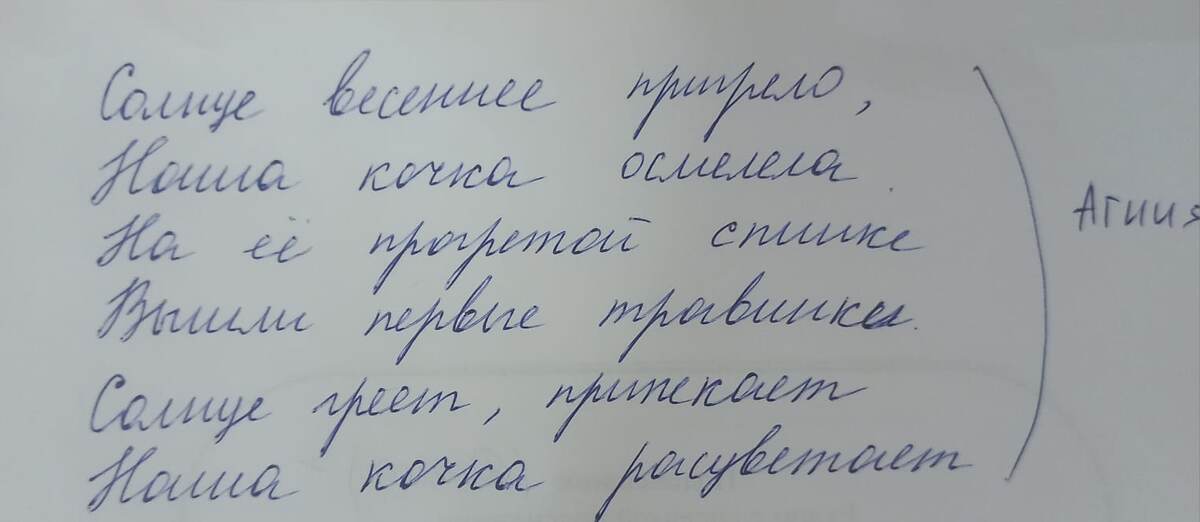 Солнце весеннее пригрело,
Наша кочка осмелела.
На её прогретой спинке
Вышли первые травинки.
Солнце греет, припекает
Наша кочка расцветает
Агния